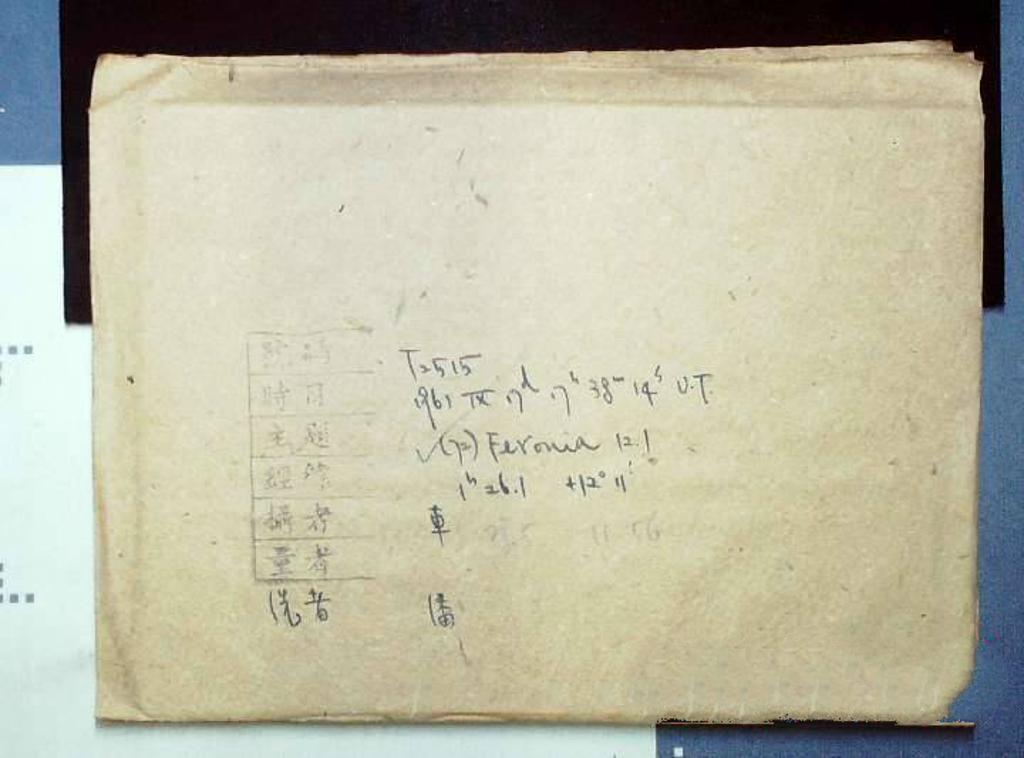 號碼 T2515
時日 1961 IX 17ᵈ 17ʰ 38ᵐ 14ˢ U.T.
主題 √(72) Feronia 12.1
經緯 1ʰ 26.1 +12° 11'
攝者 車
量者
洗者 潘